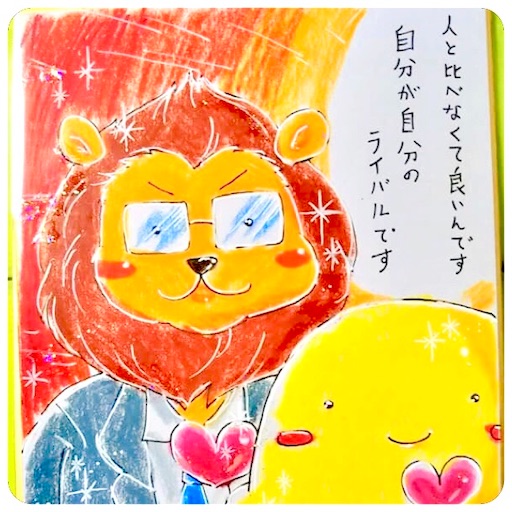 人と比べなくて良いんです
自分が自分の
ライバルです